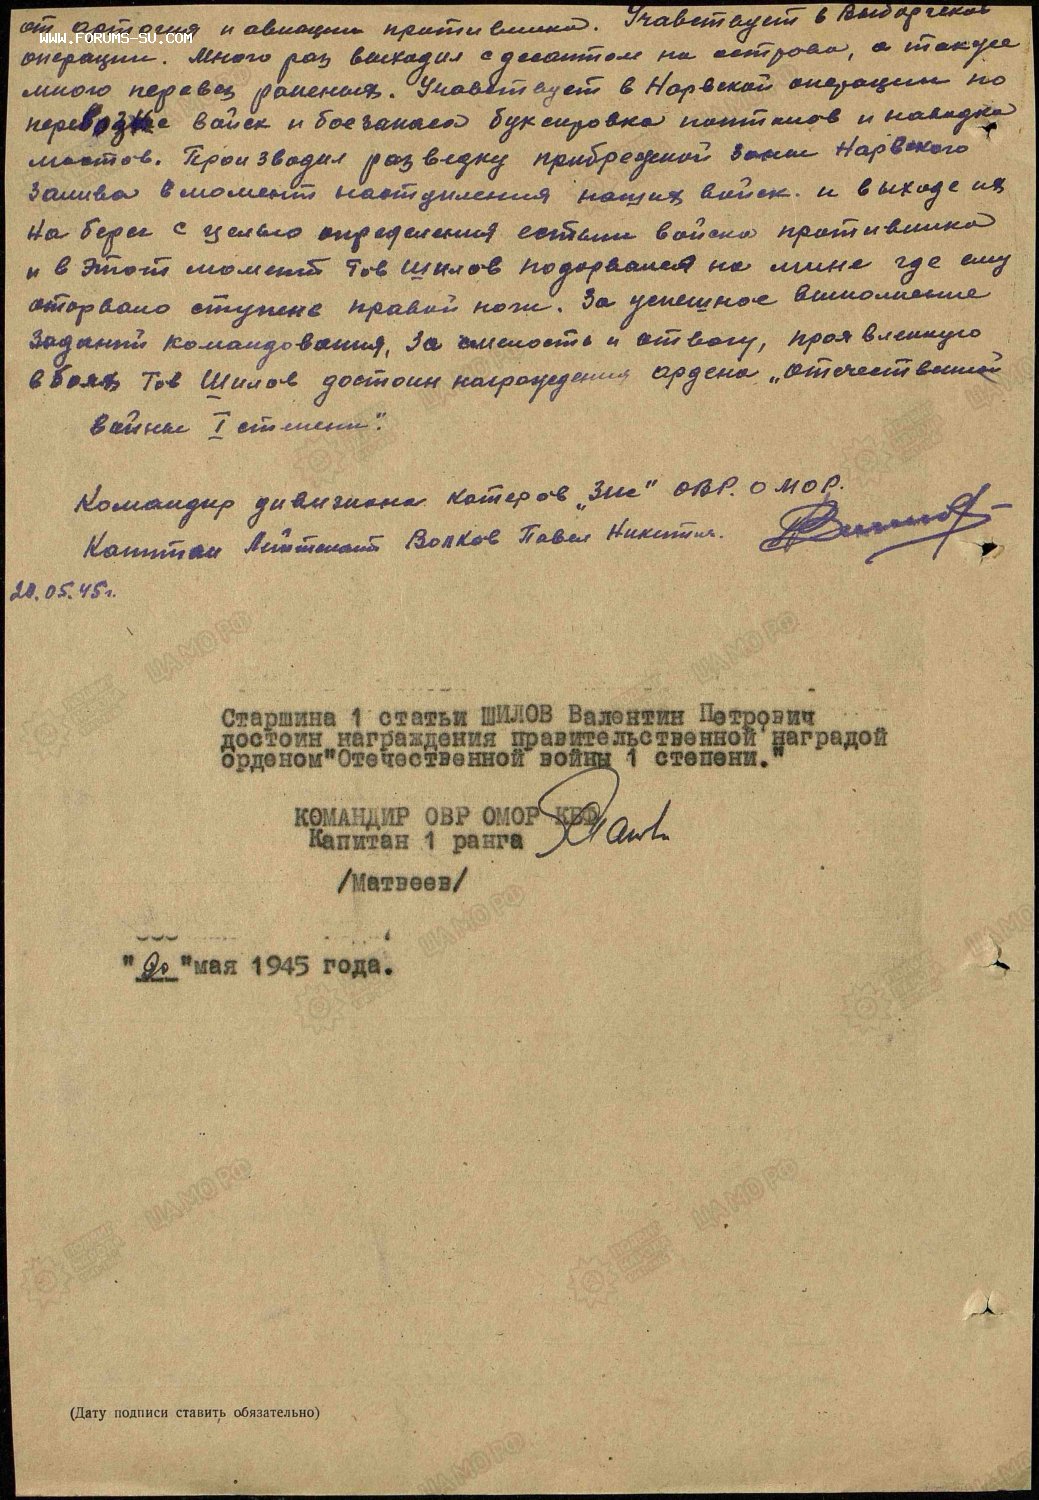 от и авиации противника. Участвует в Выборгской
WWW.FORUMS-SU.COM
операции. Много раз выходил с десантом на острова, а также
много перевез раненых. Участвует в Нарвской операции по
перевозке войск и боезапаса буксировка понтонов и наводка
мостов. Производил разведку прибрежной зоны Нарвского
залива в момент наступления наших войск. и выходе их
на берег с целью определения есть ли войска противника
и в этот момент Тов Шилов подорвался на мине где ему
оторвало ступень правой ноги. За успешное выполнение
заданий командования, за смелость и отвагу, проявленную
в боях Тов Шилов достоин награждения ордена „Отечественной
войны I степени".
Командир дивизиона катеров „ЗИС" ОВР. ОМОР.
Капитан Лейтенант Волков Павел Никитич.
20.05.45г.
Старшина 1 статьи ШИЛОВ Валентин Петрович
достоин награждения правительственной наградой
орденом"Отечественной войны 1 степени."
КОМАНДИР ОВР ОМОР КБФ
Капитан 1 ранга
/Матвеев/
"20"мая 1945 года.
(Дату подписи ставить обязательно)
ЦАМО РФ